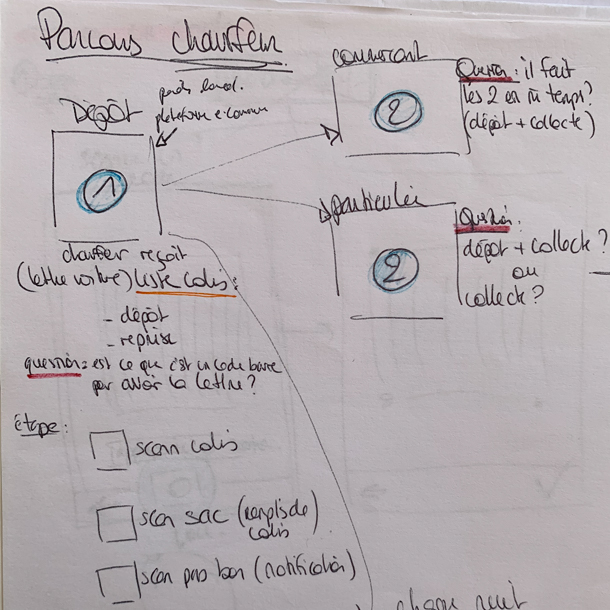 Parcours chauffeur
Dépôt
1
chauffeur reçoit
(lettre voiture) liste colis :
- dépôt
- reprise
question = est ce que c'est un code barre
pour avoir la lettre ?
étape :
scan colis
scan sac (remplis de
colis)
scan pas bon (notification)
commerçant
2
Question : il fait
les 2 en m temps ?
(dépôt + collecte)
particulier
2
Question :
dépôt + collecte ?
ou
collecte ?